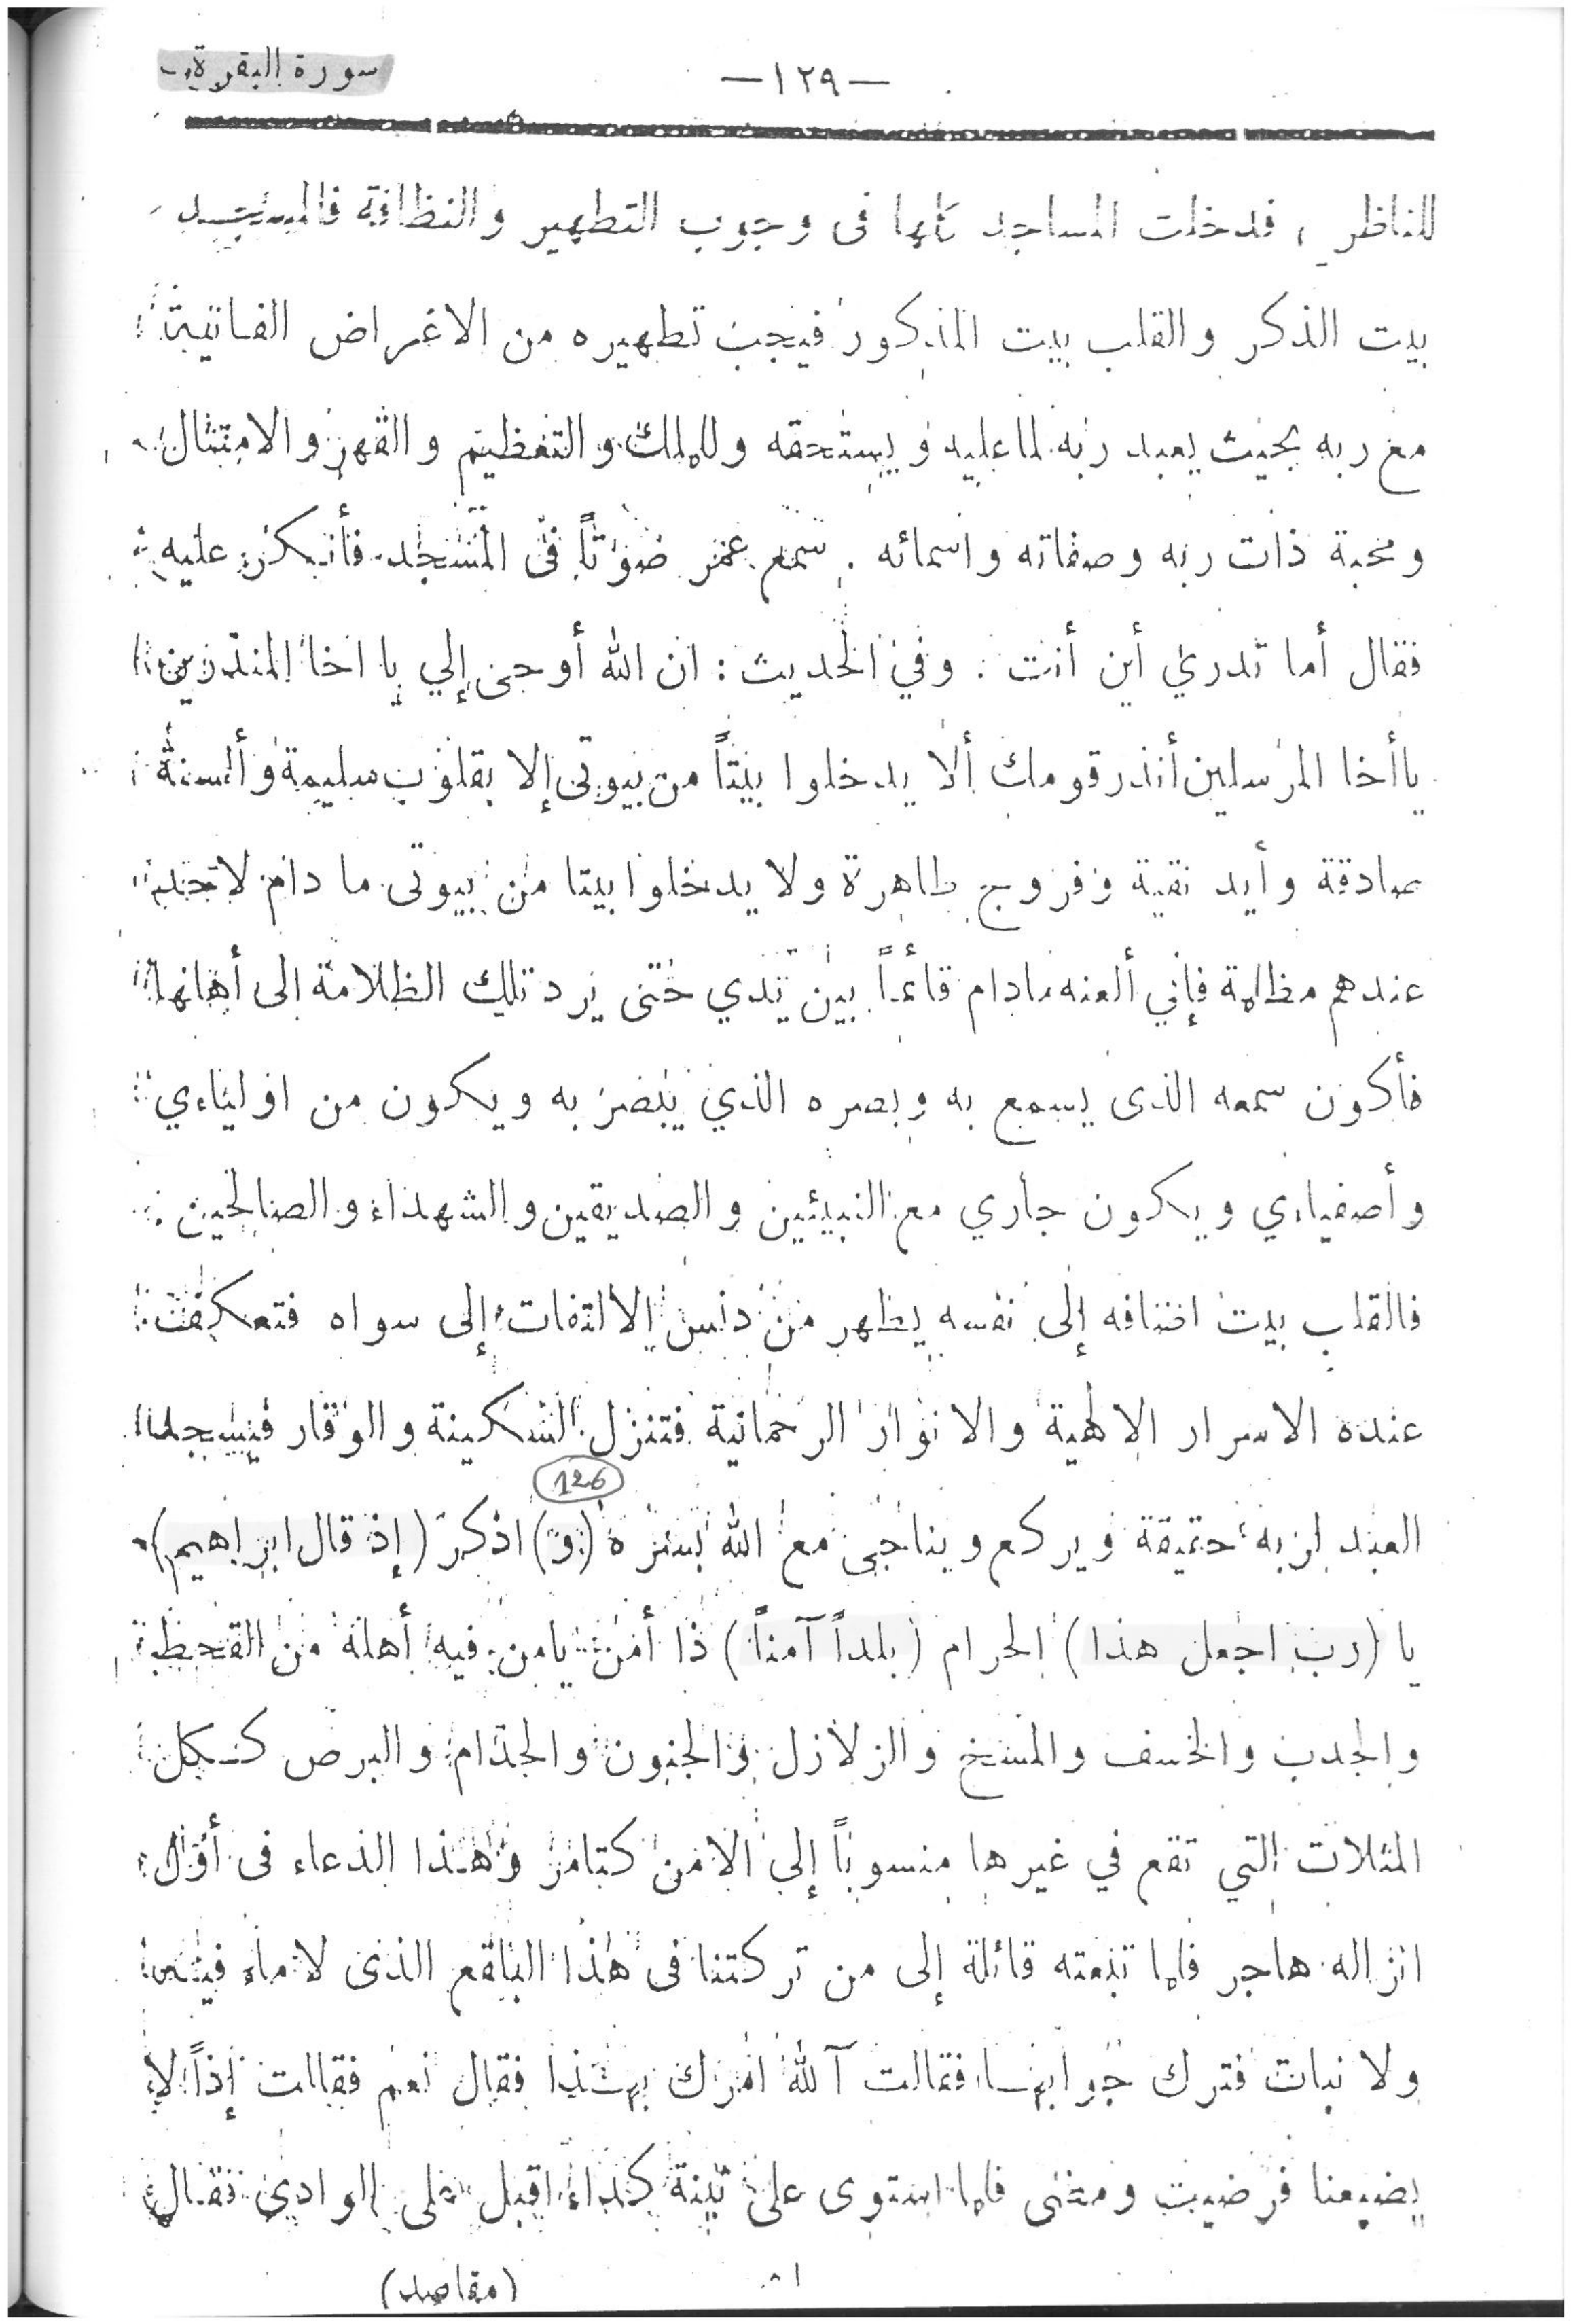 سورة البقرة
—١٢٩—
للناظر ، فدخلت المساجد كلها فى وجوب التطهير والنظافة فالمسجد
بيت الذكر والقلب بيت المذكور فيجب تطهيره من الاغراض الفانية
مع ربه بحيث يعبد ربه لما عليه ويستحقه وللملك والتعظيم والقهر والامتثال
ومحبة ذات ربه وصفاته واسمائه . سمع عمر صوتاً فى المسجد فأنكر عليه
فقال أما تدري أين أنت . وفي الحديث : ان الله أوحى إلي يا اخا المنذرين
يا أخا المرسلين أنذر قومك ألا يدخلوا بيتاً من بيوتى إلا بقلوب سليمة وألسنة
صادقة وأيد نقية وفروج طاهرة ولا يدخلوا بيتا من بيوتى ما دام لاحد
عندهم مظلمة فإني ألعنه مادام قائماً بين يدي حتى يرد تلك الظلامة إلى أهلها
فأكون سمعه الذى يسمع به وبصره الذي يبصر به ويكون من اوليائي
وأصفيائي ويكون جاري مع النبيئين والصديقين والشهداء والصالحين .
فالقلب بيت اضافه إلى نفسه يطهر من دنس الالتفات إلى سواه فتعكف
عنده الاسرار الالهية والانوار الرحمانية فتنزل السكينة والوقار فيسجد
العبد لربه حقيقة ويركع ويناجى مع الله بسره (و) اذكر (إذ قال ابراهيم)
126
يا (رب اجعل هذا) الحرام (بلداً آمناً) ذا أمن يامن فيه أهله من القحط
والجدب والخسف والمسخ والزلازل والجنون والجذام والبرص ككل
المثلات التي تقع في غيرها منسوباً إلى الامن كتامر وهذا الدعاء فى أول
انزاله هاجر فلما تبعته قائلة إلى من تركتنا فى هذا البلقع الذى لا ماء فيه
ولا نبات فترك جوابها فقالت آلله امرك بهذا فقال نعم فقالت إذاً لا
يضيعنا فرضيت ومضى فلما استوى على ثنية كداء اقبل على الوادي فقال
(مقاصد)